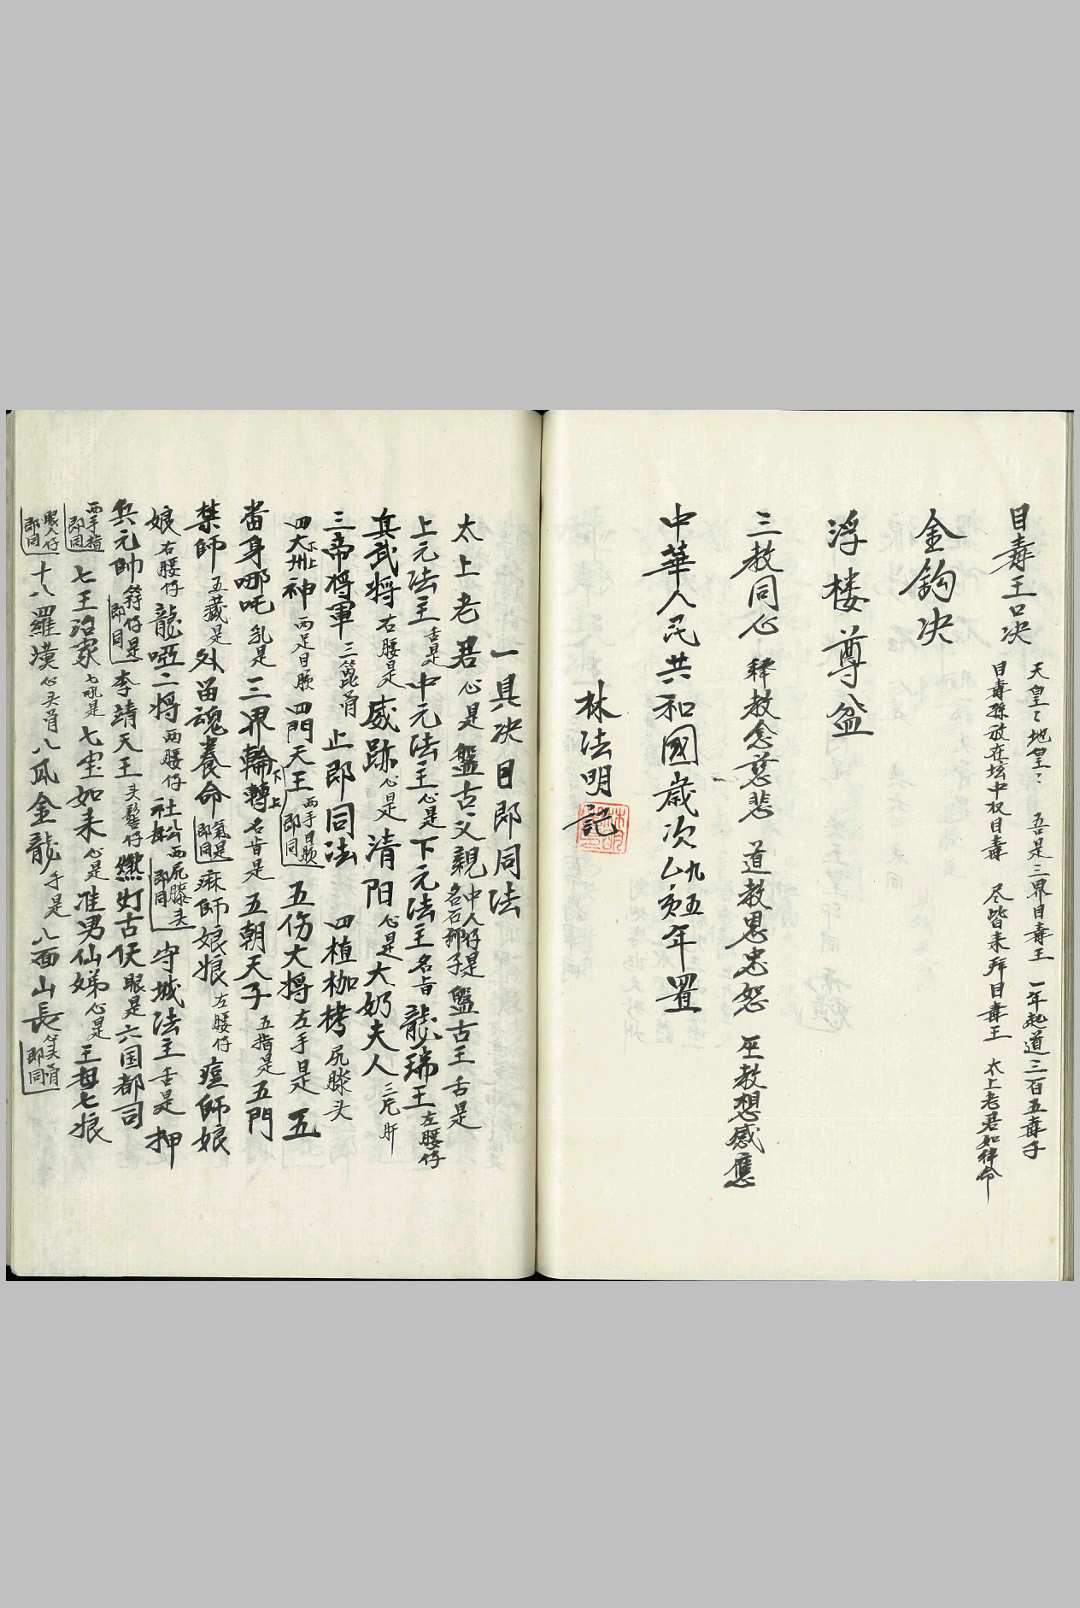 目毒王口决 天皇〻地皇〻 吾是三界目毒王 一年起道三百五毒子
目毒孫放在坛中收目毒 尽皆来拜目毒王 太上老君如律命
金鈎决
浮楼尊盆
三教同心 釋教念慈悲 道教思忠恕 巫教想感應
中華人民共和國歲次乙亥九五年置
林法明記
一具决目郎同法
太上老君心是 盤古父親中人仔是名石卵子 盤古王舌是
上元法主舌是 中元法主心是 下元法主名旨 龍瑞王左腰仔
真武將右腰是 威跡心是 清阳心是 大奶夫人三片肝
三帝將軍三箆骨 止郎同法 四植枷栲尻膝头
四大州上下神两足目眽 四門天王两手目眽郎同 五伤大將左手是 五
當身哪吒乳是 三界輪轉上下名旨是 五朝天子五指是 五門
禁師五藏是 外留魂養命氣是郎同 麻師娘娘左腰仔 痘師娘
娘右腰仔 龍啞二將两腰仔 社公社母两尻膝头郎同 守城法主舌是 押
兵元帥箬仔是郎同 李靖天王头髻仔 燃灯古伕眼是 六国都司
两手指郎同 七王治家七吼是 七宝如来心是 准男仙娣心是 王母七娘
眼人仔郎同 十八羅漢心头骨 八爪金龍手是 八面山長䈐骨郎同